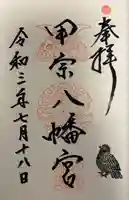 奉拝
甲宗八幡宮
令和三年七月十八日